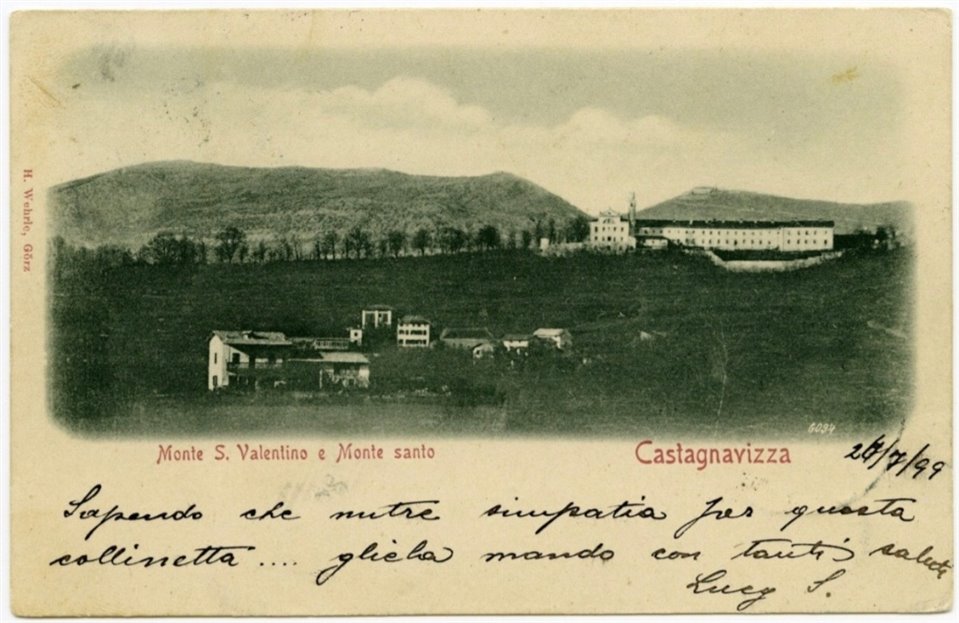 H. Wehrle, Görz
6094
Monte S. Valentino e Monte santo
Castagnavizza
/7/99
Sapendo che nutre simpatia per questa
collinetta .... gliela mando con tanti saluti
Lucy S.